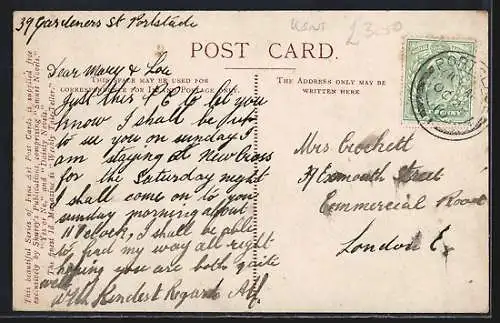 39 Gardeners St Portslade
KENT
£3.50
POST CARD.
THIS SPACE MAY BE USED FOR
CORRESPONDENCE FOR INLAND POSTAGE ONLY.
THE ADDRESS ONLY MAY BE
WRITTEN HERE
Dear Mary & Lou
Just this P.C. to let you
know I shall be
to see you on sunday I
am staying at New Cross
for the Saturday night
I shall come on to you
sunday morning about
11 o'clock, I shall be able
to find my way all right
hoping you are both quite
well
with Kindest Regards
Mrs Crockett
Exmouth Street
Commercial Road
London E.
This beautiful Series of Fine Art Post Cards is supplied free
exclusively by Shurey's Publications, comprising "Smart Novels,"
"Yes or No," and "Dainty Novels."
The finest 1d. Magazine is "Weekly Tale-Teller."